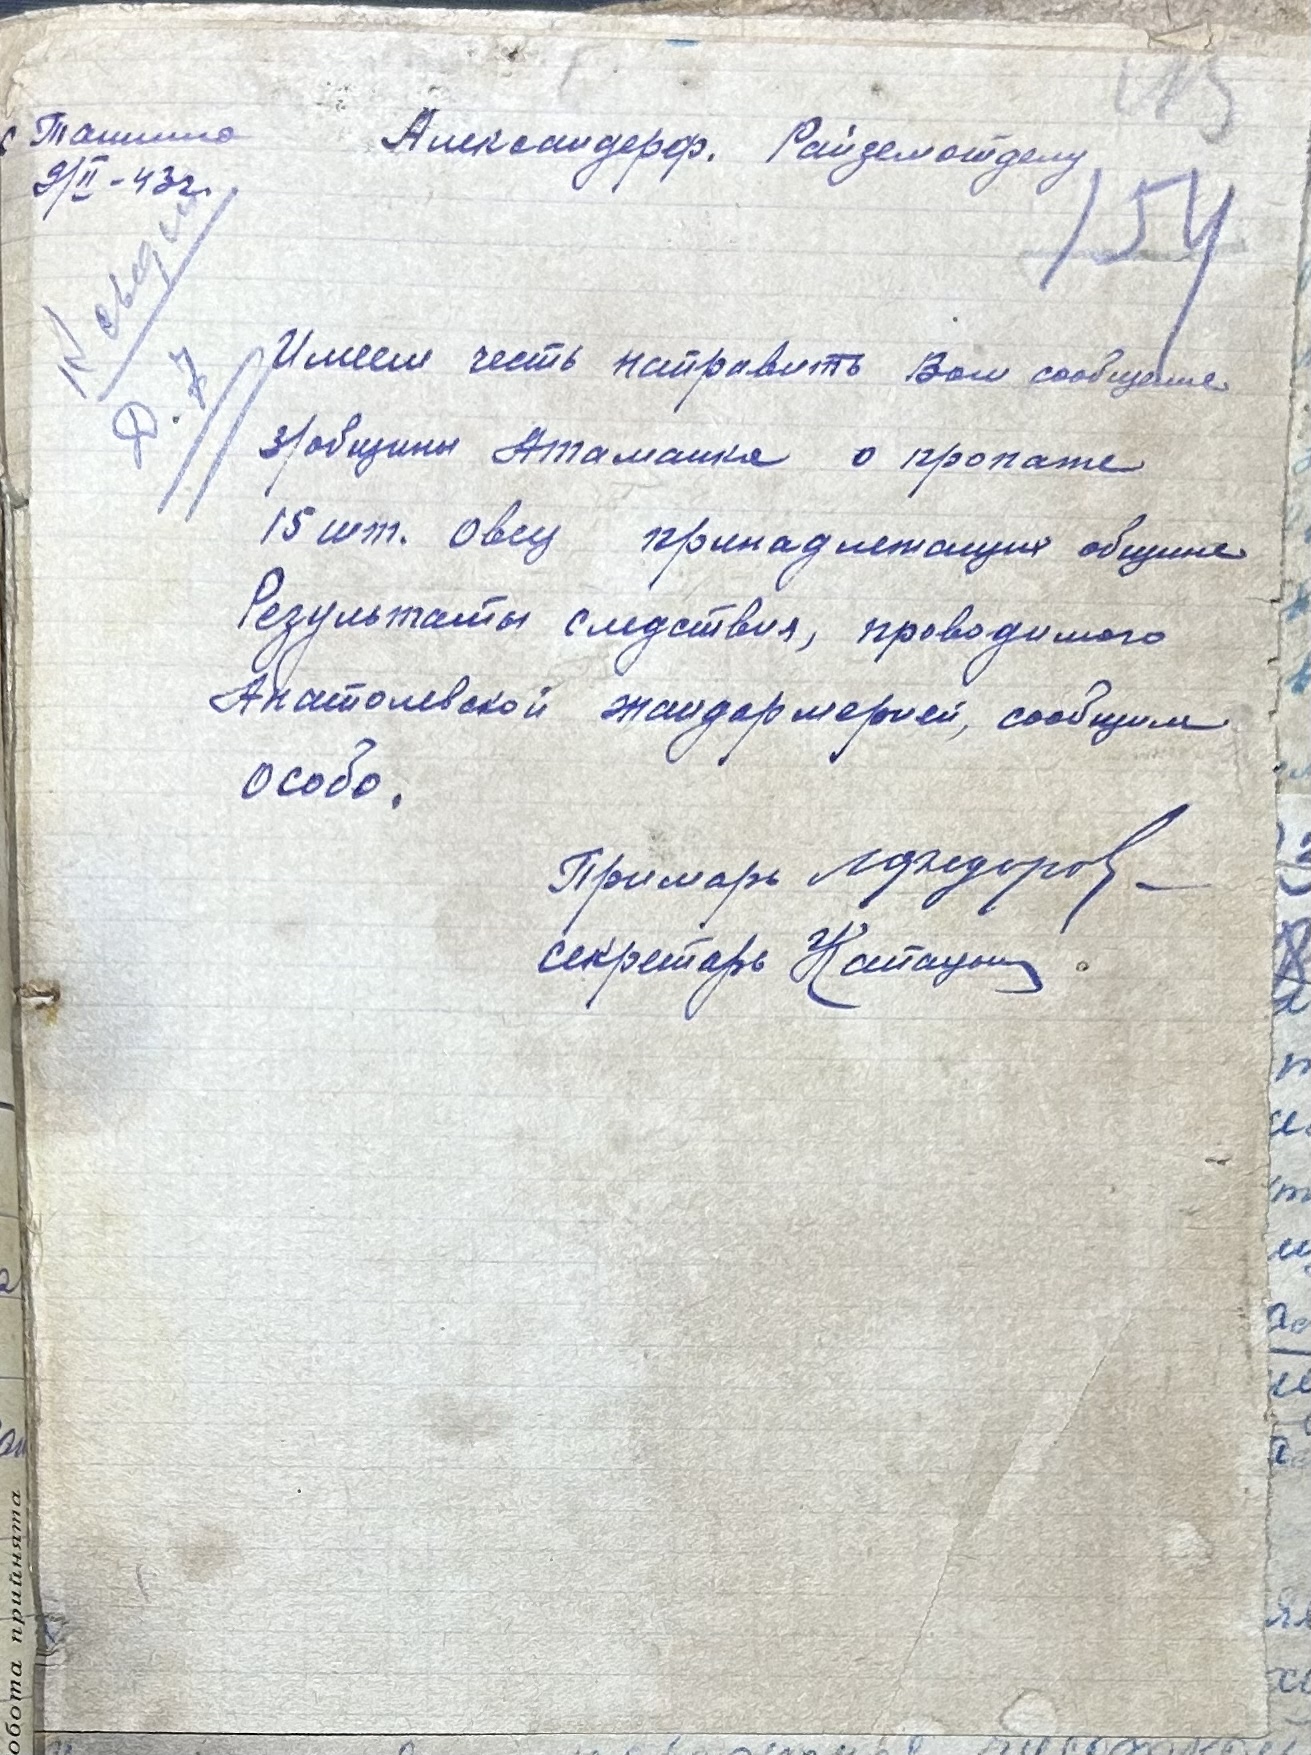 с Ташино
9/II-43г.
Александерф. Райземотделу
154
К сведен
Д. 7
Имеем честь направить Вам сообщение
з/общины Атаманка о пропаже
15 шт. Овец принадлежащих общине
Результаты следствия, проводимого
Анатолевской жандармерией, сообщим
особо.
Примарь
секретарь
обота прийнята